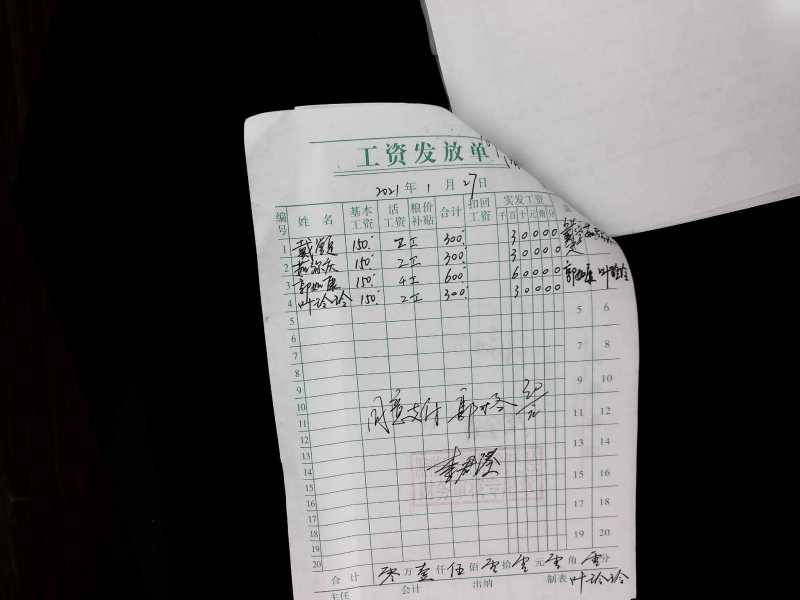 工资发放单
2021 年 1 月 27 日
编号 姓名 基本工资 活工资 粮价补贴 合计 扣回工资 实发工资
千 百 十 元 角 分
1 戴 150 2工 300 3 0 0 0 0
2 150 2工 300 3 0 0 0 0
3 郭如康 150 4工 600 6 0 0 0 0 郭如康 叶玲玲
4 叶玲玲 150 2工 300 3 0 0 0 0
5 5 6
6
7 7 8
8
9 9 10
10
11 同意支付 11 12
12
13 13 14
14
15 15 16
16
17 17 18
18
19 19 20
20
合计 零万壹仟伍佰零拾零元零角零分
主任 会计 出纳 制表 叶玲玲